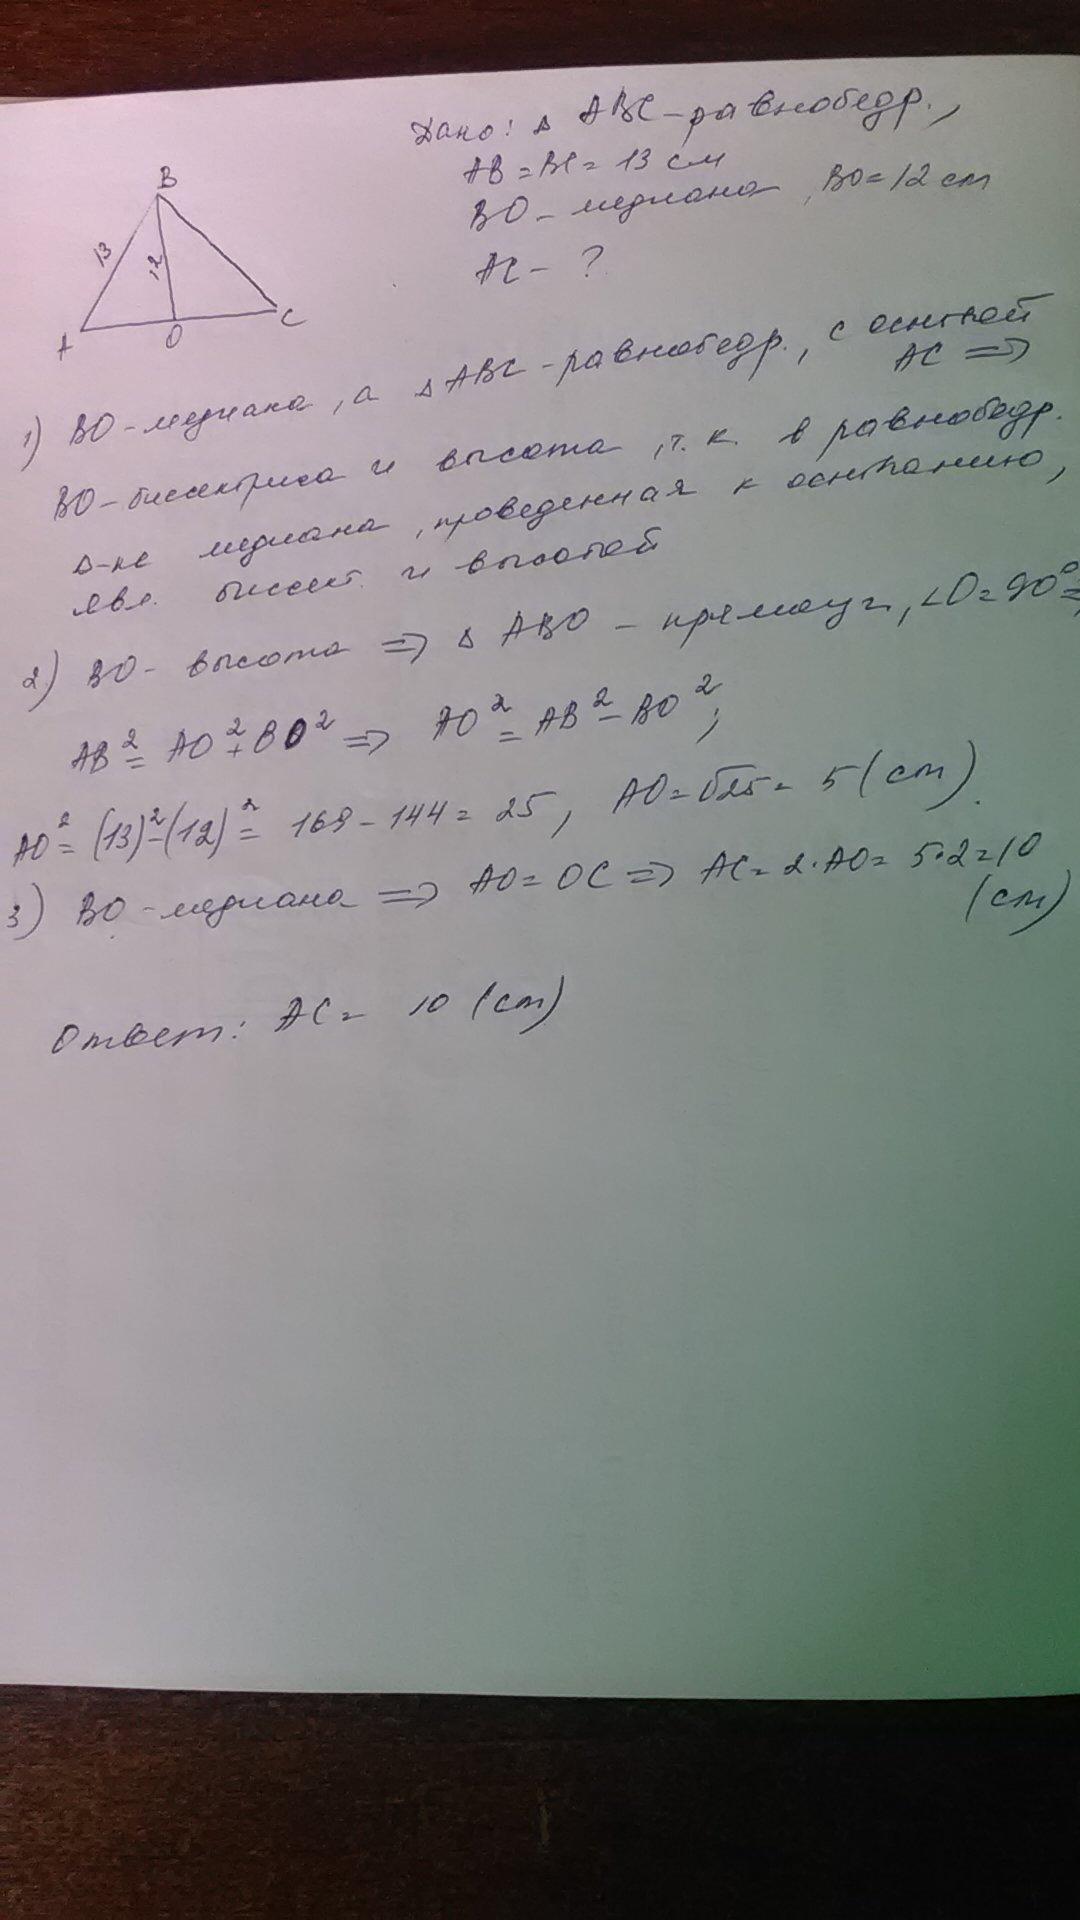 Дано: △ ABC – равнобедр.,
AB = BC = 13 см
BO – медиана, BO = 12 см
AC – ?
B
13
12
A
O
C
1) BO – медиана, а △ ABC – равнобедр., с основой
AC ⇒
BO – биссектриса и высота, т.к. в равнобедр.
△-ке медиана, проведенная к основанию,
явл. биссект. и высотой
2) BO – высота ⇒ △ ABO – прямоуг., ∠O = 90° ⇒
AB² = AO² + BO² ⇒ AO² = AB² – BO²;
AO² = (13)² – (12)² = 169 – 144 = 25, AO = √25 = 5 (см).
3) BO – медиана ⇒ AO = OC ⇒ AC = 2·AO = 5·2 = 10
(см)
Ответ: AC = 10 (см)